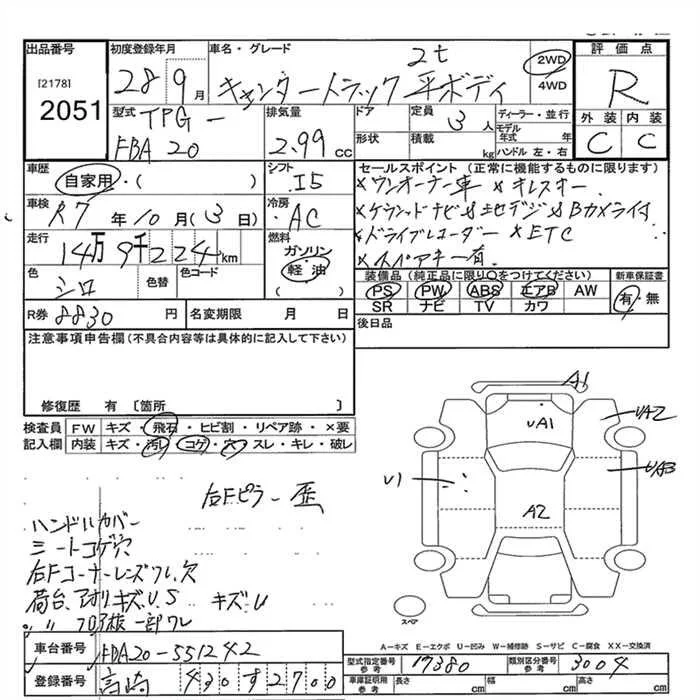 出品番号 初度登録年月 車名・グレード 評価点
[2178]
2051
28 9月 キャンタートラック 平ボディ 2t 2WD 4WD
R
型式 TPG-
FBA20
排気量
2.99 CC
ドア 定員 3人 ディーラー・並行
形状 積載 kg モデル年式 年
ハンドル 左・右
外装 内装
C C
車歴
自家用・( )
シフト
I5
セールスポイント (正常に機能するものに限ります)
×ワンオーナー車 ×キレスキー
×ケンウッドナビ 地デジ Bカメラ付
×ドライブレコーダー ×ETC
×スペアキー有
車検 R7年10月(3日)
冷房
AC
走行
14万9千224km
燃料
ガソリン
軽・油
( )
色 色替 色コード
シロ
R券 8830円 名変期限 月 日
装備品 (純正品に限り○をつけてください) 新車保証書
PS PW ABS エアB AW
SR ナビ TV カワ
有・無
後日品
注意事項申告欄(不具合内容等は具体的に記入して下さい)
修復歴 有 〔箇所 〕
検査員 FW キズ・飛石・ヒビ割・リペア跡・×要
記入欄 内装 キズ・汚レ・コゲ・穴・スレ・キレ・破レ
A1
UA1
UA2
UA3
U1
A2
右Fピラー 歪
ハンドルカバー
シートコゲ穴
右Fコーナーレンズワレ,欠
荷台,アオリキズ,U,S キズU
〃 〃 フロア板一部ワレ
スペア
A-キズ E-エクボ U-凹み W-補修跡 S-サビ C-腐食 XX-交換済
車台番号 FBA20-551242
登録番号 高崎 430 す 2700
型式指定番号 参考 17380 類別区分番号 参考 3004
車庫証明用 参考 長さ cm 幅 cm 高さ cm